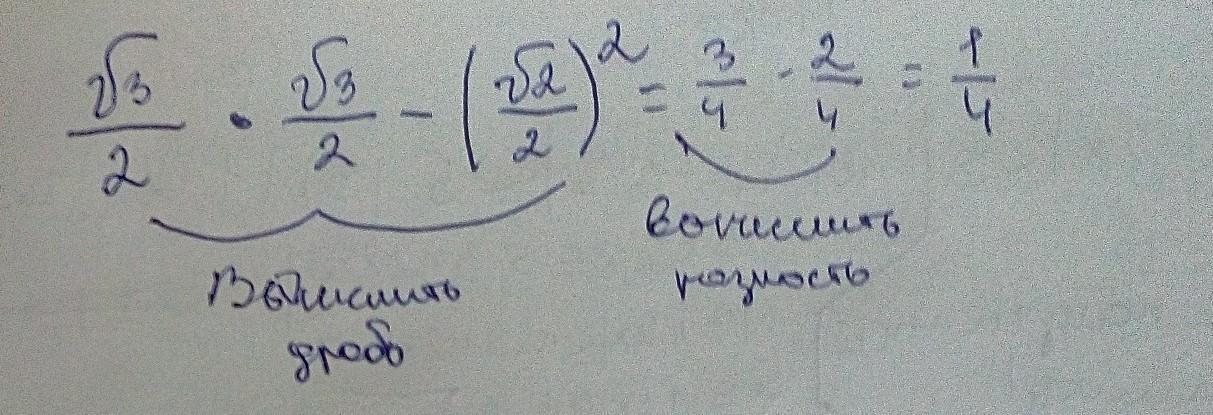 √3/2 · √3/2 − (√2/2)² = 3/4 - 2/4 = 1/4
Вычислить
дробь
вычислить
разность